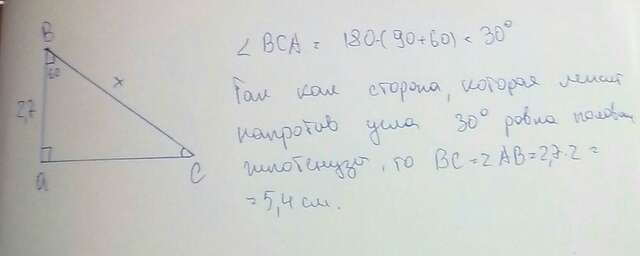 B
60
2,7
x
a
C
∠ BCA = 180-(90+60) = 30°
Так как сторона, которая лежит
напротив угла 30° равна половин
гипотенузы, то BC = 2 AB = 2,7·2 =
= 5,4 см.